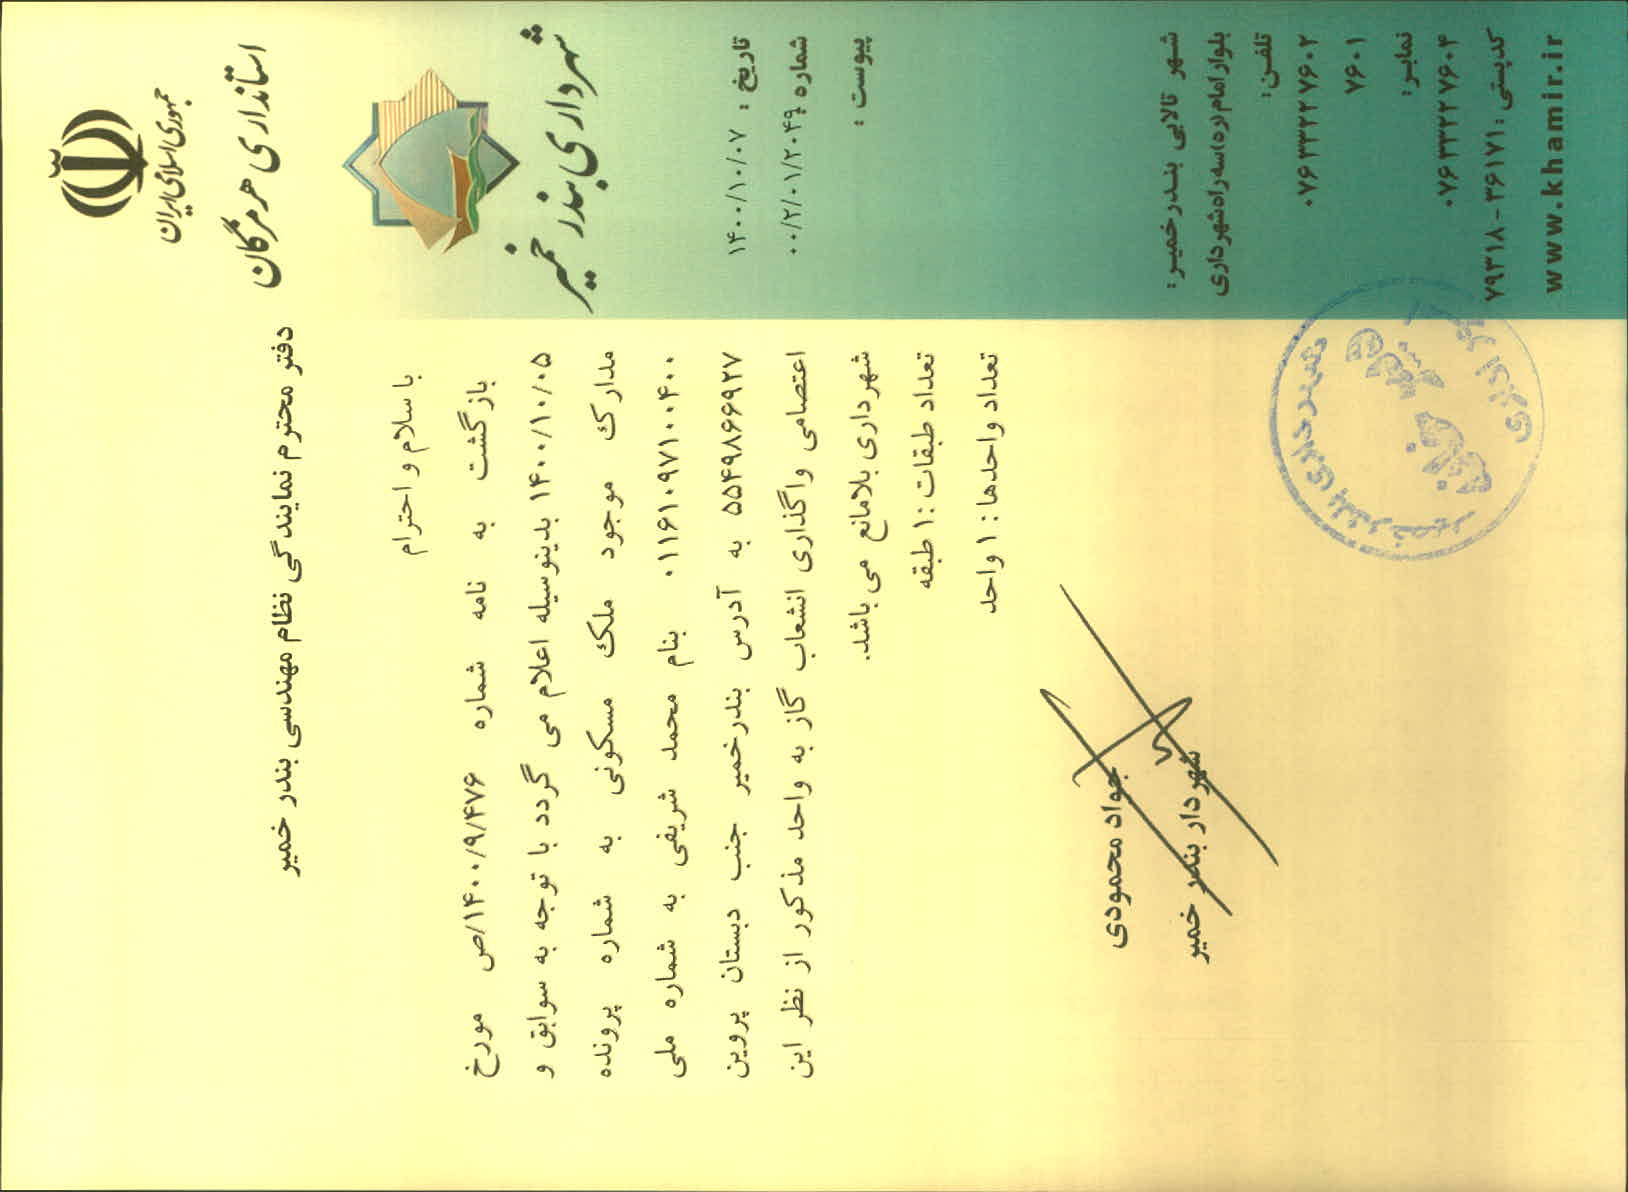 جمهوری اسلامی ایران
استانداری هرمزگان
شهرداری بندر خمیر
تاریخ : ۱۴۰۰/۱۰/۰۷
شماره : ۰۰/۲/۰۱/۲۰۴۹
پیوست :
دفتر محترم نمایندگی نظام مهندسی بندر خمیر
با سلام و احترام
بازگشت به نامه شماره ۱۴۰۰/۹/۴۷۶/ص مورخ
۱۴۰۰/۱۰/۰۵ بدینوسیله اعلام می گردد با توجه به سوابق و
مدارک موجود ملک مسکونی به شماره پرونده
۰۱۱۶۱۰۹۷۱۰۰۴۰۰ بنام محمد شریفی به شماره ملی
۵۵۴۹۸۶۶۹۲۷ به آدرس بندرخمیر جنب دبستان پروین
اعتصامی واگذاری انشعاب گاز به واحد مذکور از نظر این
شهرداری بلامانع می باشد.
تعداد طبقات :۱ طبقه
تعداد واحدها : ۱ واحد
جواد محمودی
شهردار بندر خمیر
شهرداری بندر خمیر
شهر تالابی بندرخمیر:
بلوار امام(ره)سه راه شهرداری
تلفن:
۰۷۶۳۳۲۲۷۶۰۲
۷۶۰۱
نمابر:
۰۷۶۳۳۲۲۷۶۰۴
کدپستی :۳۶۱۷۱-۷۹۳۱۸
www.khamir.ir